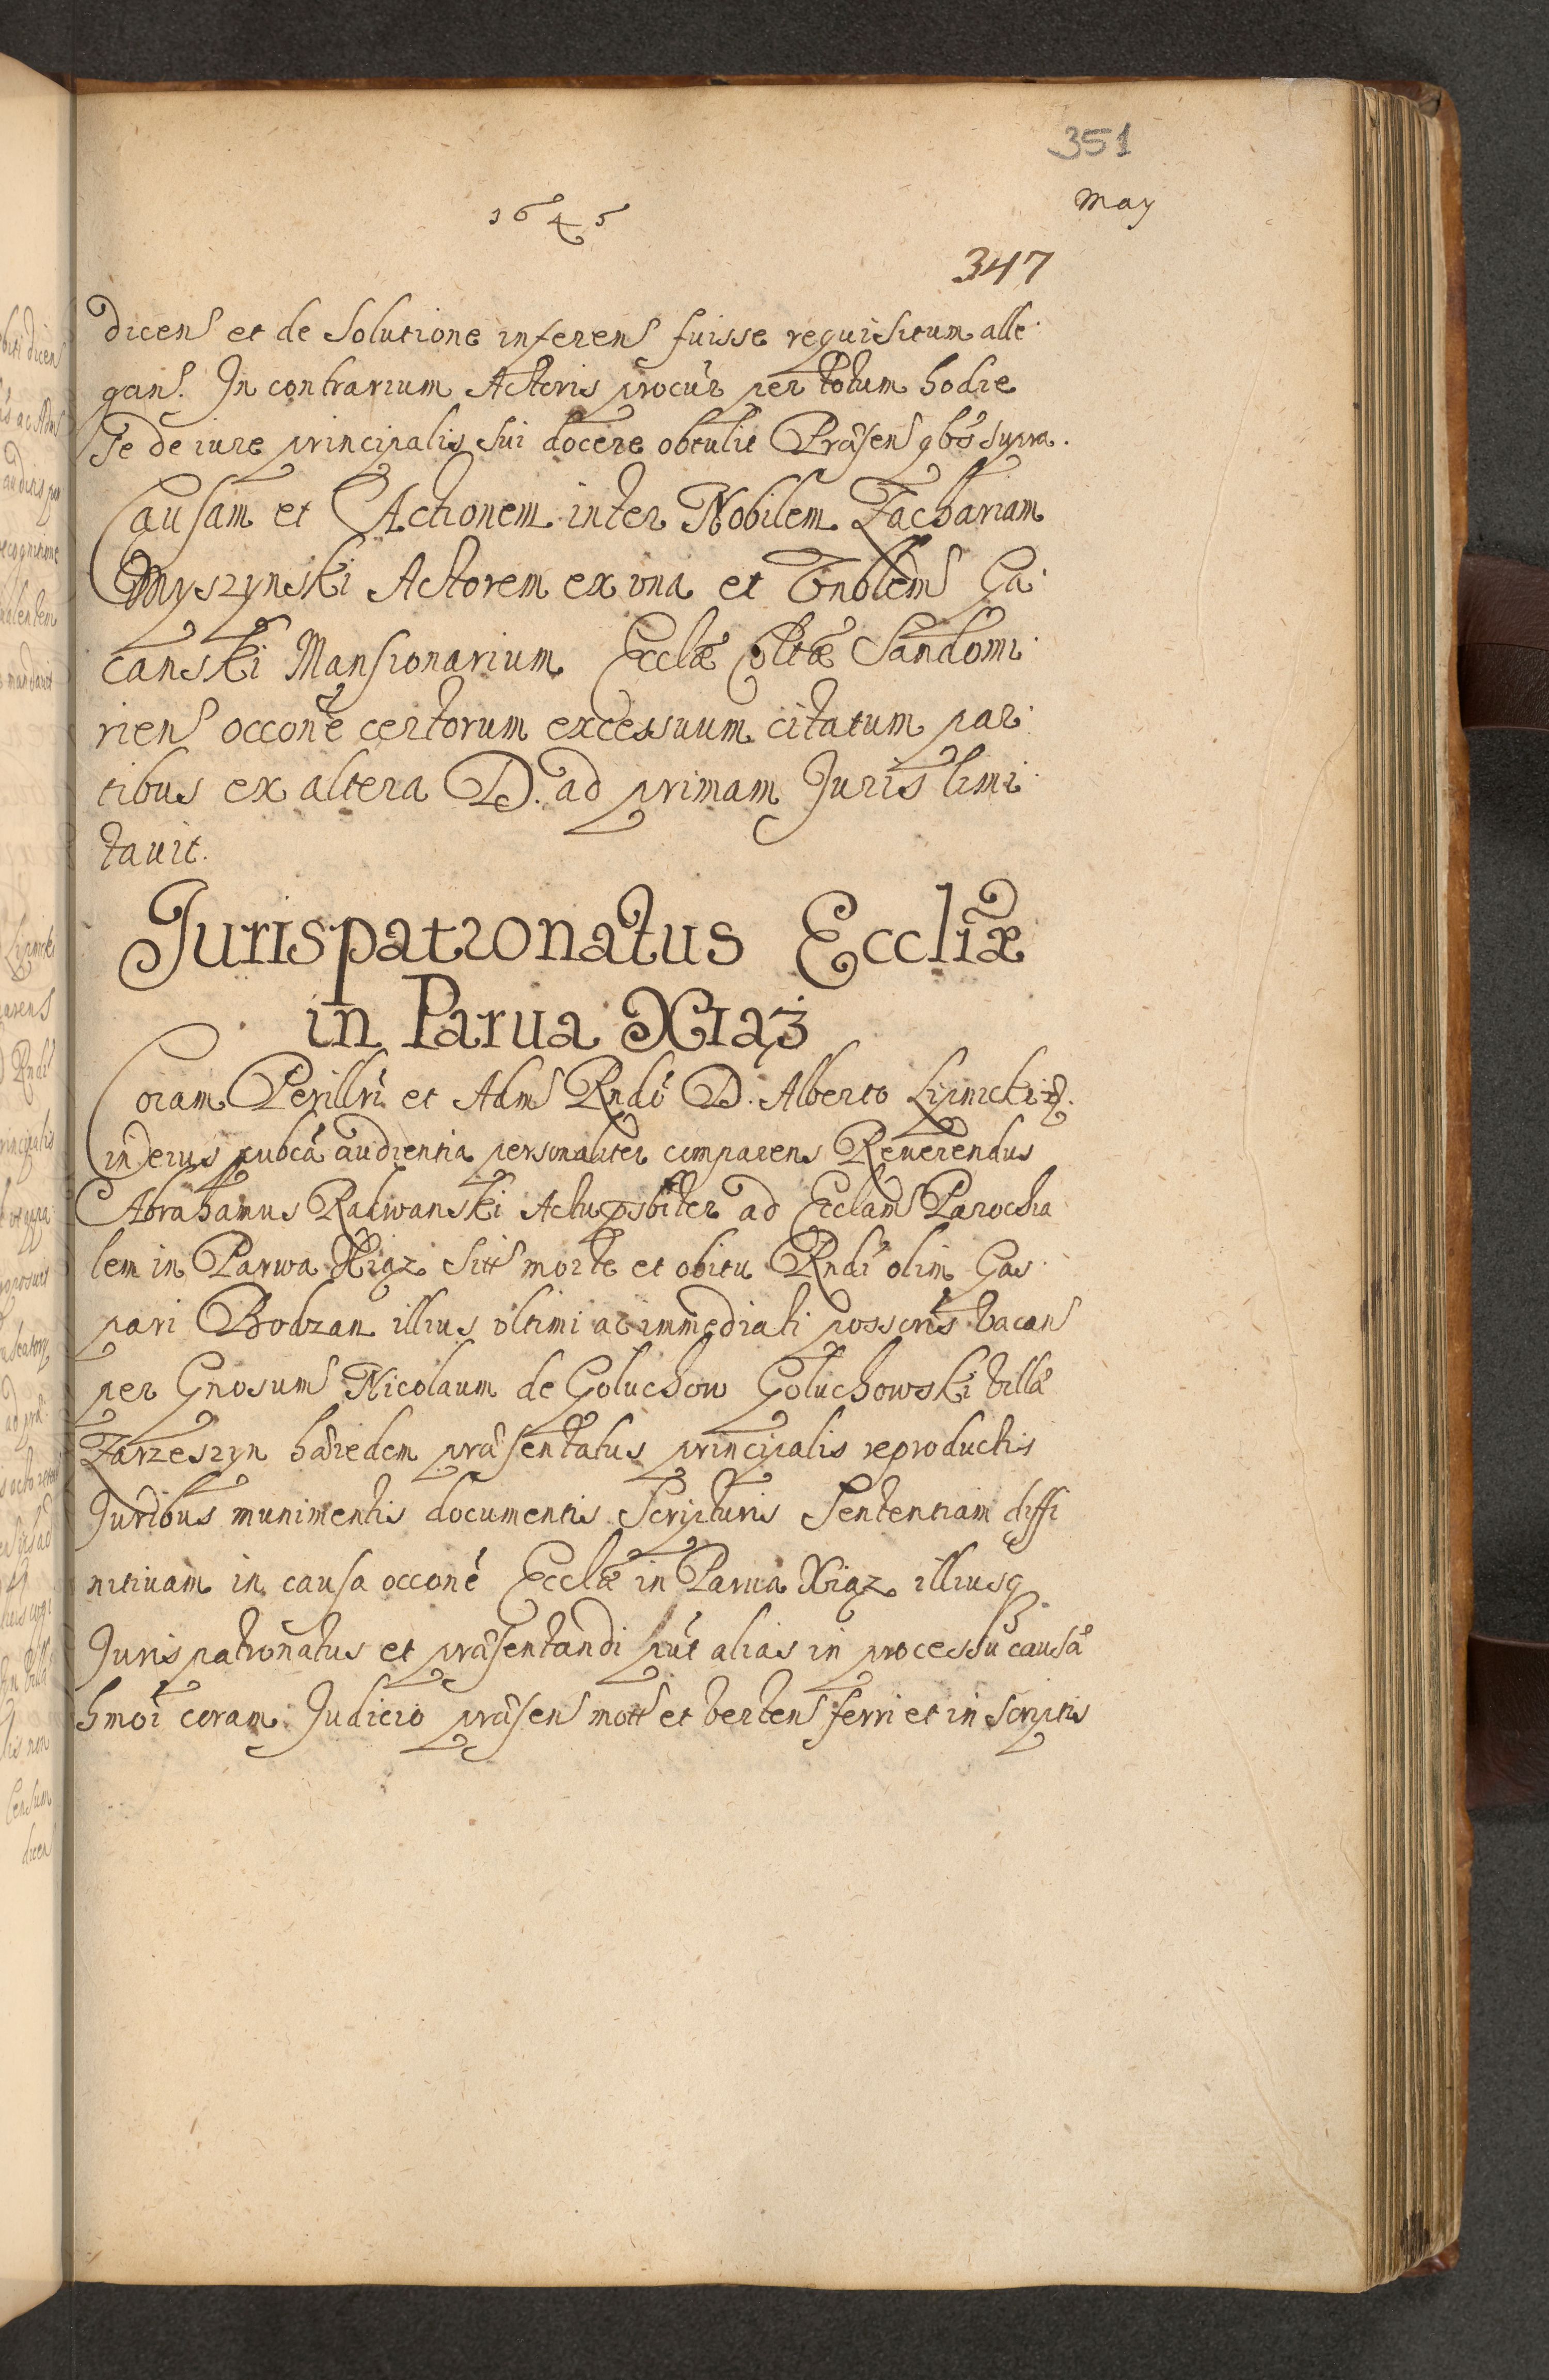 351
May
1645
347
dicens et de Solutione inferens fuisse requisitum alle
gans. In contrarium Actoris procur per totum hodie
Se de iure principalis sui docere obtulit Præsen qbs supra.
Causam et Actionem inter Nobilem Zachariam
Myszynski Actorem ex una et Gnblem Ga
canski Mansionarium Ecclæ Coltæ Sandomi
riens occone certorum excessuum citatum par
tibus ex altera D. ad primam Juris limi
tauit.
Jurispatronatus Eccliæ
in Parua Xiąż
Coram Perillri et Adm Rndo D. Alberto Lipnicki
in eius pubca audientia personaliter comparens Reuerendus
Abrahamus Radwanski Actu psbiter ad Ecclam Parochia
lem in Parwa Xiąz sitt morte et obitu Rndi olim Gas
pari Bodzan illius vltimi ac immediati possoris vacan
per Gnosum Nicolaum de Goluchow Goluchowski villæ
Zarzeszyn hæredem præsentatus principalis reproductis
Juribus munimentis documentis Scripturis Sententiam diffi
nitiuam in causa occone Ecclæ in Parua Xiąz illiusq
Juris patronatus et præsentandi put alias in processu causæ
hmoi coram Judicio præsen mott et verten ferri et in Scriptis